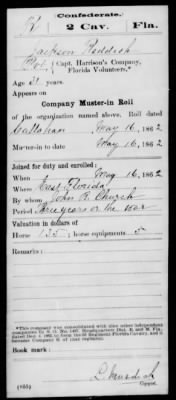 Confederate.
R 2 Cav. Fla.
Jackson Reddish
Pvt., Capt. Harrison's Company,
Florida Volunteers.*
Age 21 years.
Appears on
Company Muster-in Roll
of the organization named above. Roll dated
Callahan May 16, 1862
Muster-in to date May 16, 1862
Joined for duty and enrolled:
When May 16, 1862
Where East Florida
By whom John R. Church
Period three years or the war
Valuation in dollars of
Horse, 135; horse equipments 5
Remarks:
*This company was consolidated with nine other independent
Book mark:
(655) Copyist.